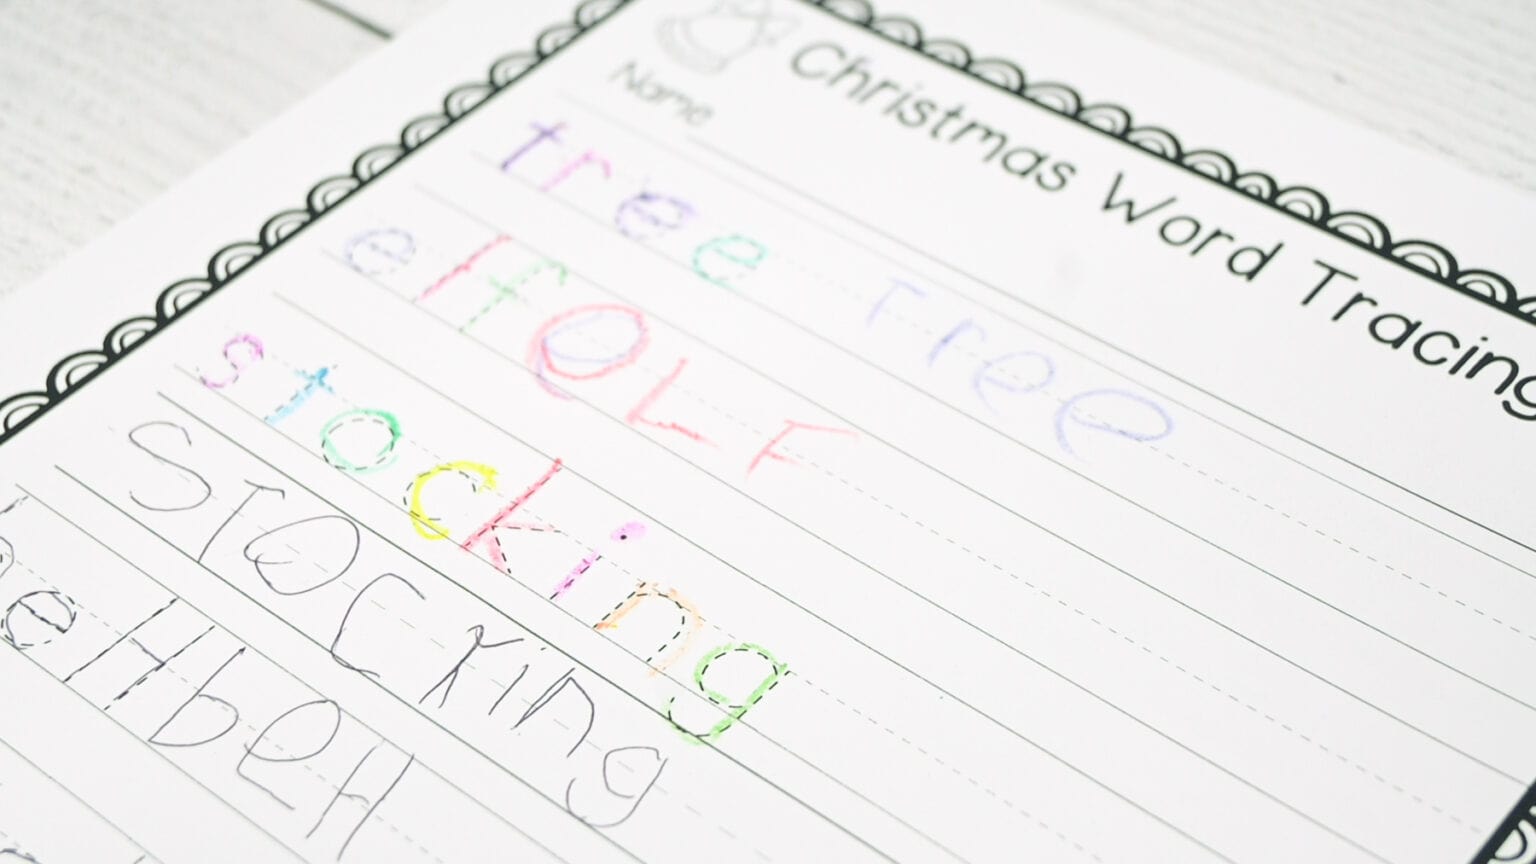 Christmas Word Tracing
Name
tree Tree
elf eLF
stocking
STOCKing
bell bell